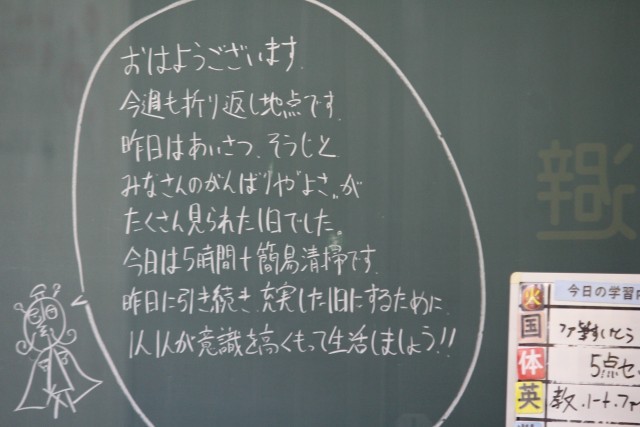 おはようございます.
今週も折り返し地点です.
昨日はあいさつ.そうじと
みなさんのがんばりや"よさ"が
たくさん見られた1日でした。
今日は5時間+簡易清掃です.
昨日に引き続き.充実した1日にするために.
1人1人が意識を高くもって生活しましょう!!
今日の学習
火
国
体 5点セ
英 教.ノート.ファ